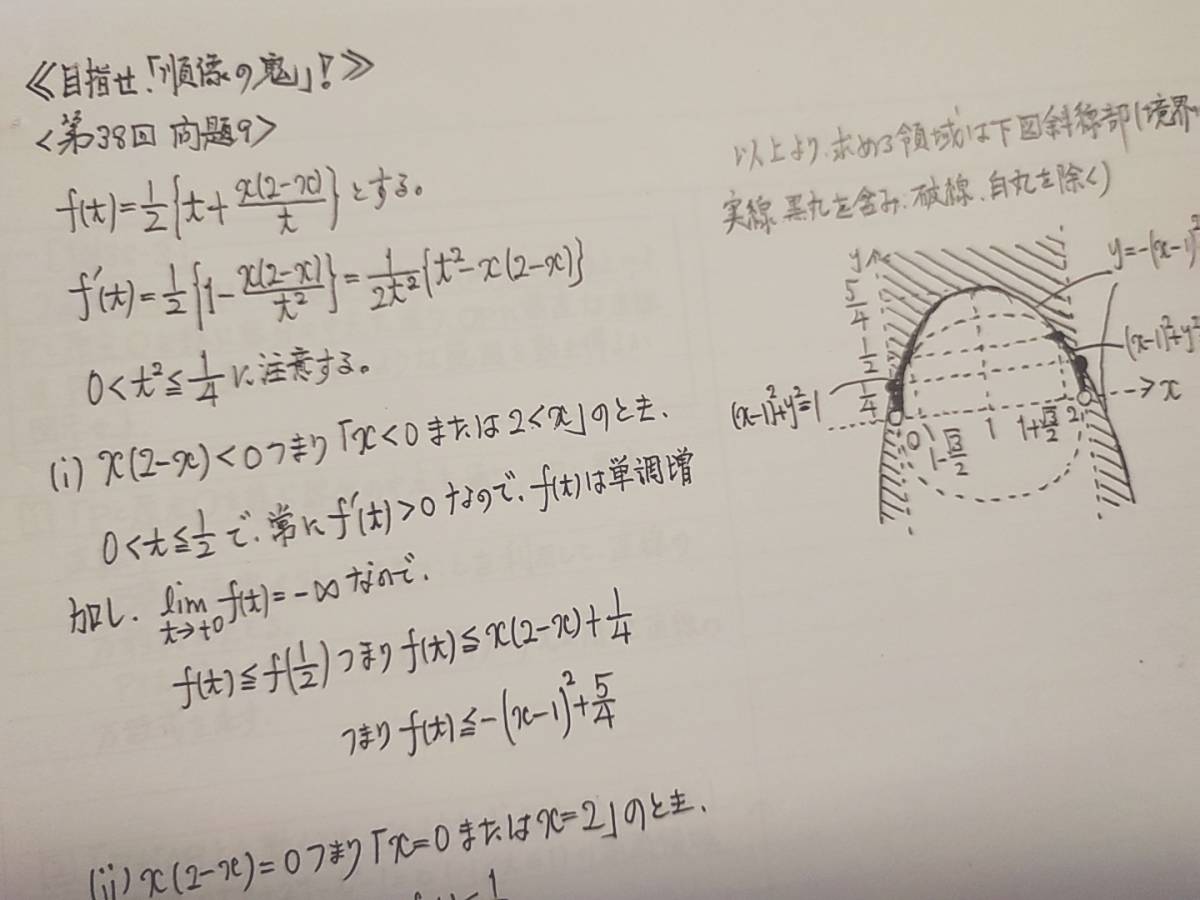 ≪目指せ、「順像の鬼」!≫
<第38回 問題9>
f(t)=1/2{t+x(2-x)/t}とする。
f'(t)=1/2{1-x(2-x)/t²}=1/2t²{t²-x(2-x)}
0<t²≦1/4に注意する。
(i) x(2-x)<0つまり「x<0または2<x」のとき、
0<t≦1/2で、常にf'(t)>0なので、f(t)は単調増
加し、lim t→+0 f(t)=-∞なので、
f(t)≦f(1/2)つまりf(t)≦x(2-x)+1/4
つまりf(t)≦-(x-1)²+5/4
(ii) x(2-x)=0つまり「x=0またはx=2」のとき、
以上より、求める領域は下図斜線部(境界
実線、黒丸を含み、破線、白丸を除く)
y
5/4
1/2
1/4
(x-1)²+y²=1
y=-(x-1)²
(x-1)²+y²
0
1-√3/2
1
1+√3/2
2
x